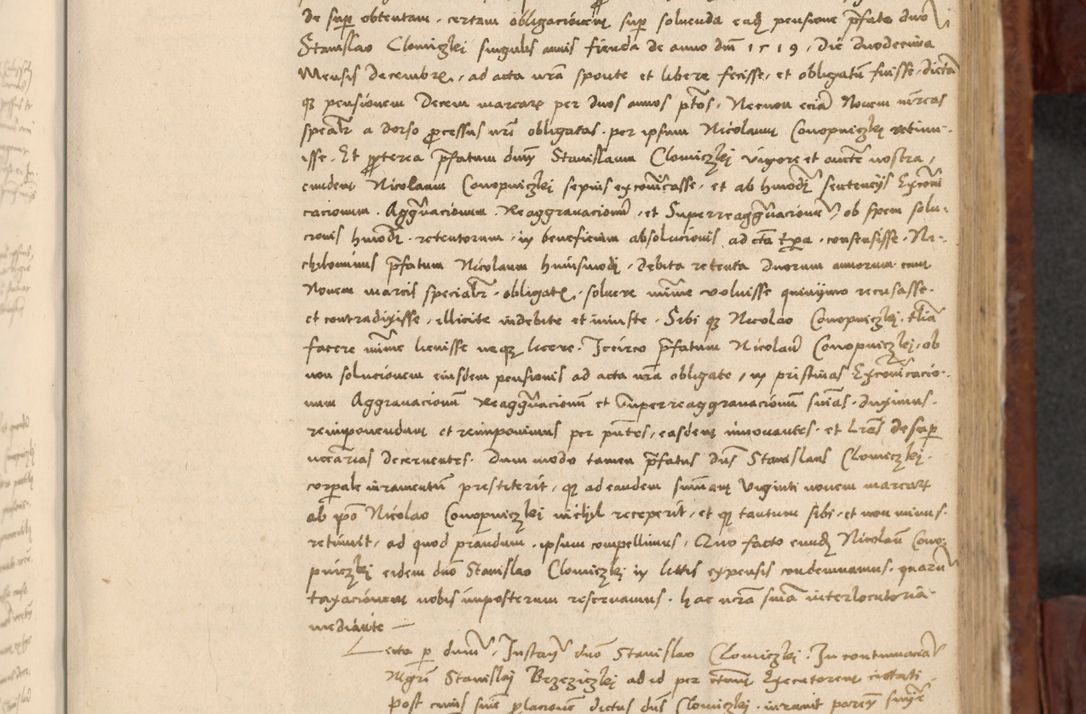 de sup obtentam . certam obligacionem sup soluenda ead pensione pfato dno
Stanislao Clomiczkj singulis annis fienda de anno dni 1519 , die duodecima
Mensis decembris , ad acta nra sponte et libere fecisse , et obligatum fuisse , dicta
q pensionem Decem marcarum per duos annos ptos , Necnon ecia Nouem mrcas
spcialr a dorso processus nri obligatas . per ipsum Nicolaum Conopniczkj retinu-
isse . Et ppterea pfatum dnm Stanislaum Clomiczkj vigore et aucte nostra ,
eundem Nicolaum Conopniczkj sepius excoicasse , et ab hmodi sentencijs Exconi
cacionum . Aggruacionum . Reaggrauacionum , et Superreaggruacionum , ob spem solu-
cionis hmodi . retentorum , in beneficium absolucionis ad cta tpa . consensisse . Ni-
chylominus pfatum Nicolaum huiusmodi , debita retenta duorum annorum cum
Nouem marcis specialr . obligatis . soluere mime voluisse quinymo recusasse .
et contradixisse , illicite indebite et iniuste . Sibi q Nicolao Conopniczkj . talia
facere mime licuisse neq licere . Iccirco pfatum Nicolaum Conopniczkj , ob
non solucionem eiusdem pensionis ad acta nra obligate , in pristinas Excoicacio-
num Aggrauacionum Reaggruacionum et Superreaggrauacionum snias . duximus .
reimponendum et reimponimus per pntes , easdem innouantes . et lras desup
necarias decernentes . Dummodo tamen pfatus dns Stanislaus Clomiczkj .
corpale iuramentum prestiterit , q ad eandem summam viginti nouem marcarum
ab ipo Nicolao Conopniczkj nichyl receperit , et q tantum sibi , et non minus .
retinuit , ad quod prandum . ipsum compellimus , Quo facto eundem Nicolaum Cono-
pniczkj eidem dno Stanislao Clomiczkj in littis expensis condemnamus . quarum
taxacionem nobis imposterum reseruamus . hac nra snia interlocutoria .
mediante —
Lecta p dnum , Instan dno Stanislao Clomiczkj . In contumacia
Mgri Stanislaj Brzeziczkj ad id per Executorem citati .
Post cuius snie placionem dictus dns Clomiczkj . iurauit